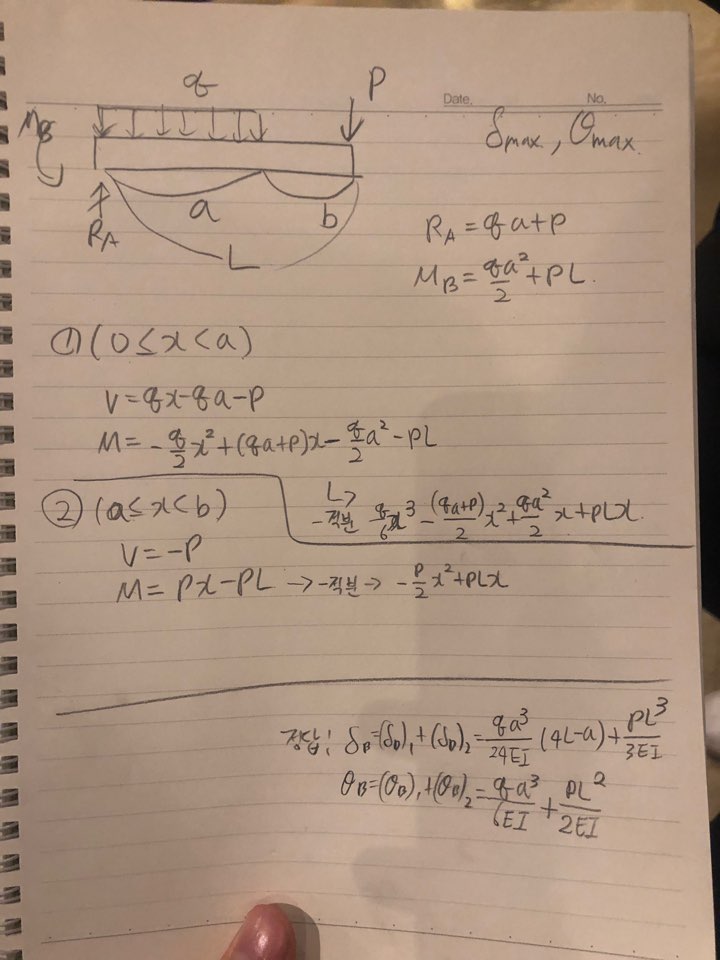 q
P
Date. No.
M_B
δmax, θmax.
a
b
R_A
L
R_A = qa+P
M_B = qa²/2 + PL.
① (0 ≤ x < a)
V = qx - qa - P
M = -q/2 x² + (qa+P)x - q/2 a² - PL
② (a ≤ x < b)
↳ -적분 q/6 x³ - (qa+P)/2 x² + qa²/2 x + PLx
V = -P
M = Px - PL → -적분 → -P/2 x² + PLx
정답! δ_B = (δ_B)₁ + (δ_B)₂ = qa³/24EI (4L-a) + PL³/3EI
θ_B = (θ_B)₁ + (θ_B)₂ = qa³/6EI + PL²/2EI